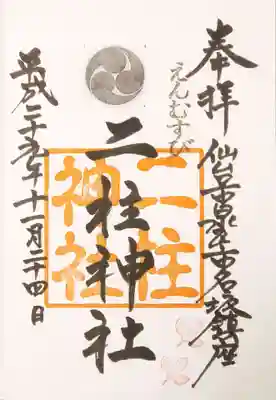 奉拝
仙台市泉区市名坂鎮座
えんむすび
二柱神社
二柱
神社
平成二十五年十一月二十四日